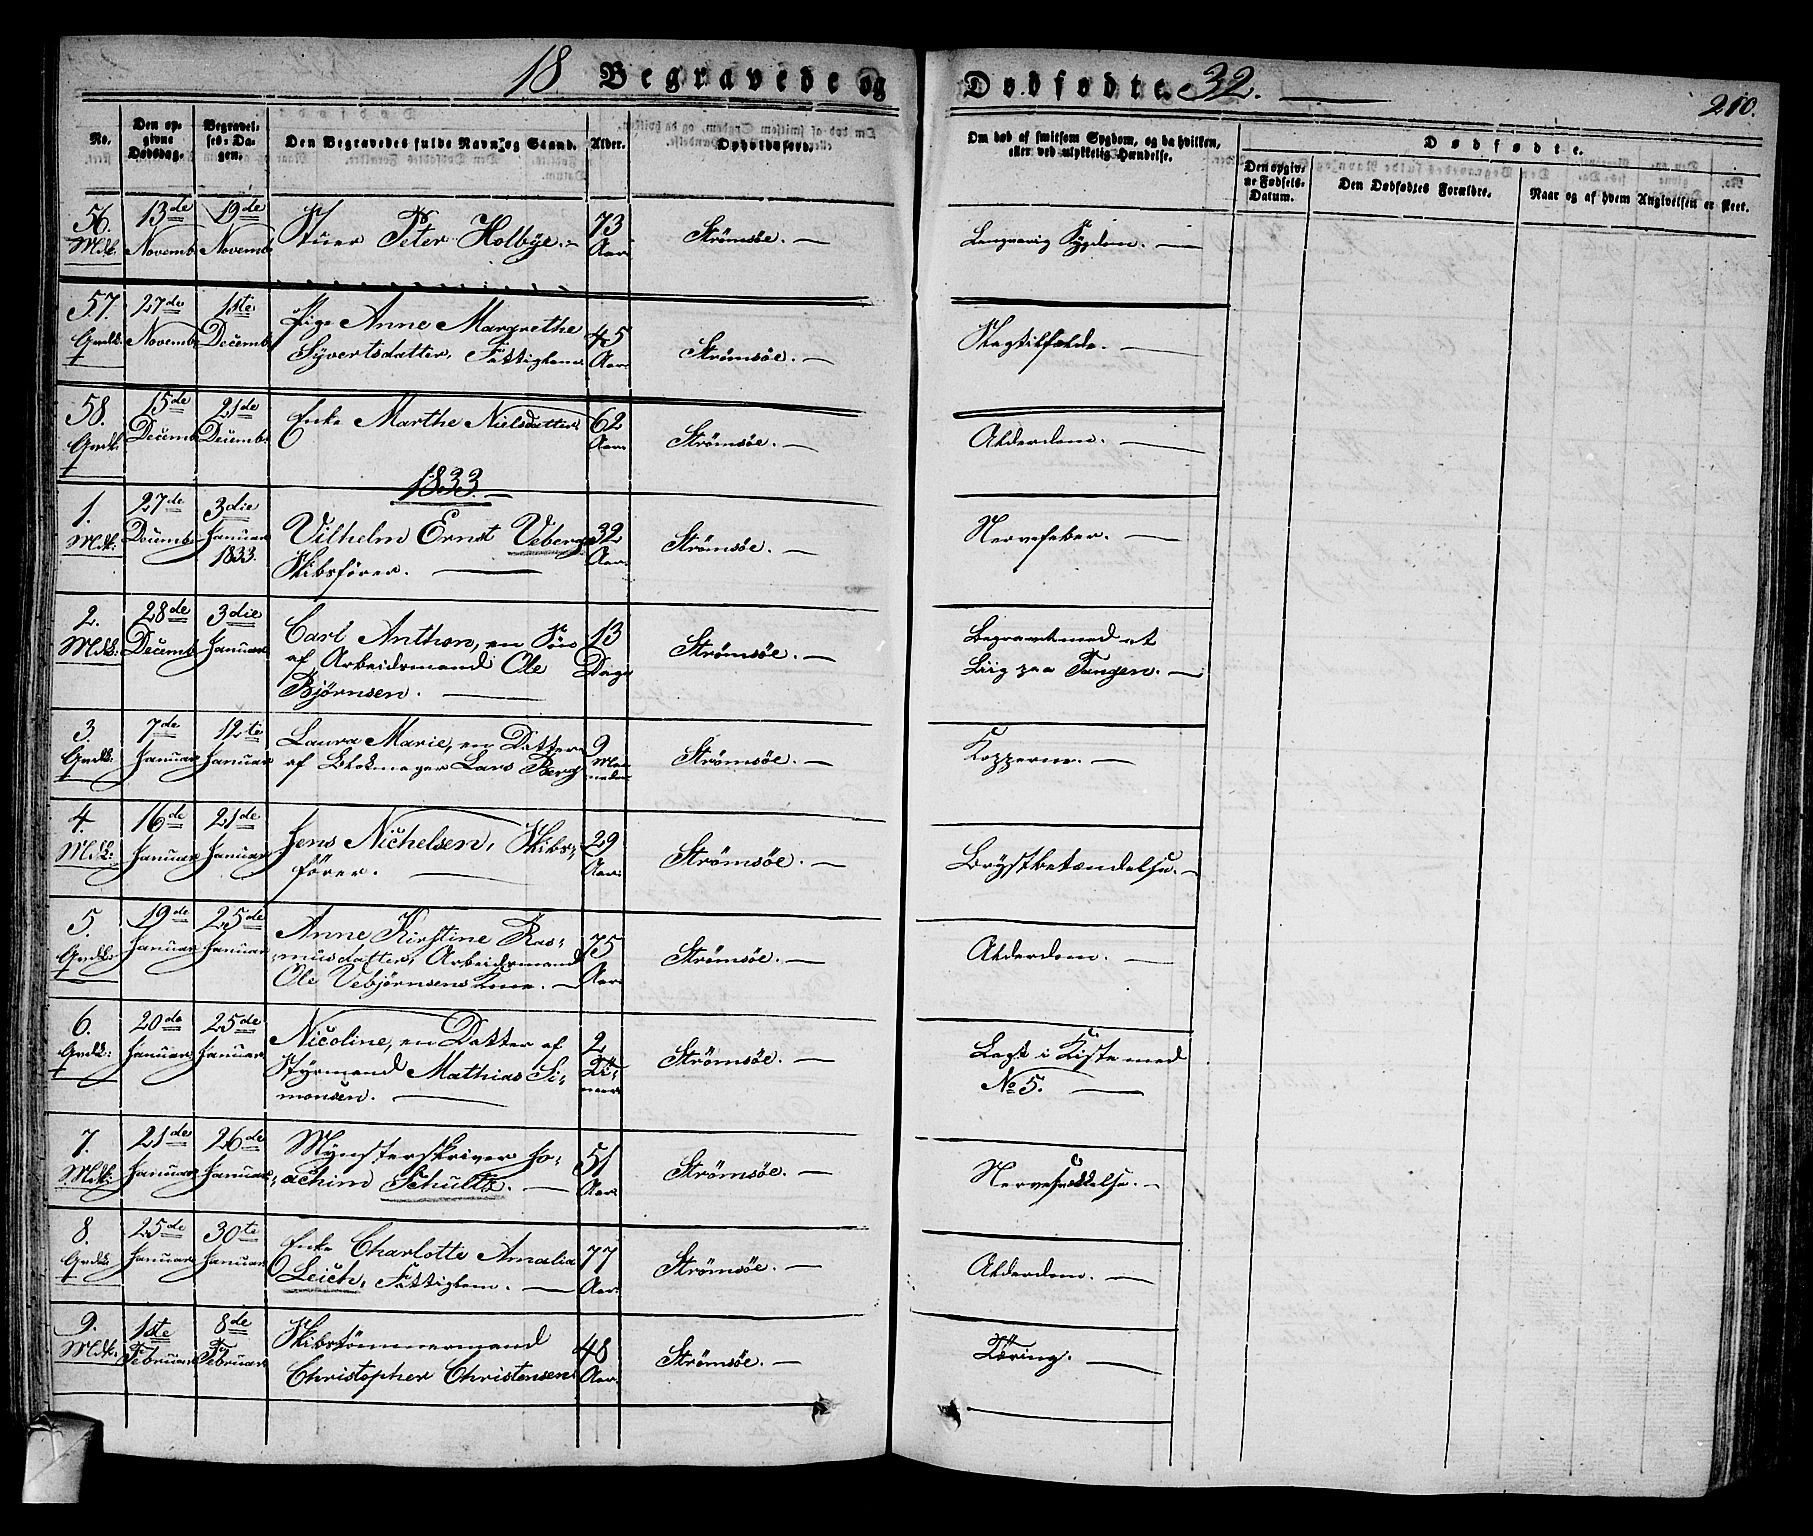 18 Begravede og Dødfødte. 32. 210.
No. Den opgivne Dødsdag. Begravelses-Dagen. Den Begravedes fulde Navn og Stand. Alder. Opholdssted. Om død af smitsom Sygdom, og da hvilken, eller ved ulykkelig Hændelse. Dødfødte.
Den opgivne Fødsels-Datum. Den Dødfødtes Forældre. Naar og af hvem Angivelsen er skeet.
56. 13de 19de Stuer Peter Holbye. 73 Strømsøe. Langvarig Sygdom.
Mdk: Novembr Novembr Aar
57. 27de 1ste Pige Anne Margrethe 45 Strømsøe. Slagtilfælde.
Qvdk: Novembr Decembr Syvertsdatter, Fattiglem Aar
58. 15de 21de Enke Marthe Nielsdatter 62 Strømsøe. Alderdom.
Qvdk: Decembr Decembr Aar
1833
1. 27de 3die Vilhelm Ernst Veberg 32 Strømsøe. Nervefeber.
Mdk: Decembr Januar Skibsfører. Aar
1833
2. 28de 3die Carl Anthon, en Søn 13 Strømsøe. Begravet med et
Mdk: Decemb Januar af Arbeidsmand Ole Dage Liig paa Tangen.
Bjørnsen.
3. 7de 12te Laura Marie, en Datter 9 Strømsøe. Kopperne.
Qvdk: Januar Januar af Blokmager Lars Berg Maaneder
4. 16de 21de Jens Nichelsen, Skibs- 29 Strømsøe. Brystbetændelse.
Mdk: Januar Januar fører. Aar
5. 19de 25de Anne Kirstine Ras- 75 Strømsøe. Alderdom.
Qvdk: Januar Januar musdatter, Arbeidsmand Aar
Ole Vebjørnsens Kone.
6. 20de 25de Nicoline, en Datter af 2 Strømsøe. Lagt i Kiste med
Qvdk: Januar Januar Styrmand Mathias Si- Timer No 5.
monsen.
7. 21de 26de Mynsterskriver Jo- 51 Strømsøe.
Mdk: Januar Januar achim Schultz. Aar
8. 25de 30te Enke Charlotte Amalia 77 Strømsøe. Alderdom.
Qvdk: Januar Januar Leich, Fattiglem. Aar
9. 1ste 8de Skibstømmermand 48 Strømsøe. Tæring.
Mdk: Februar Februar Christopher Christensen Aar